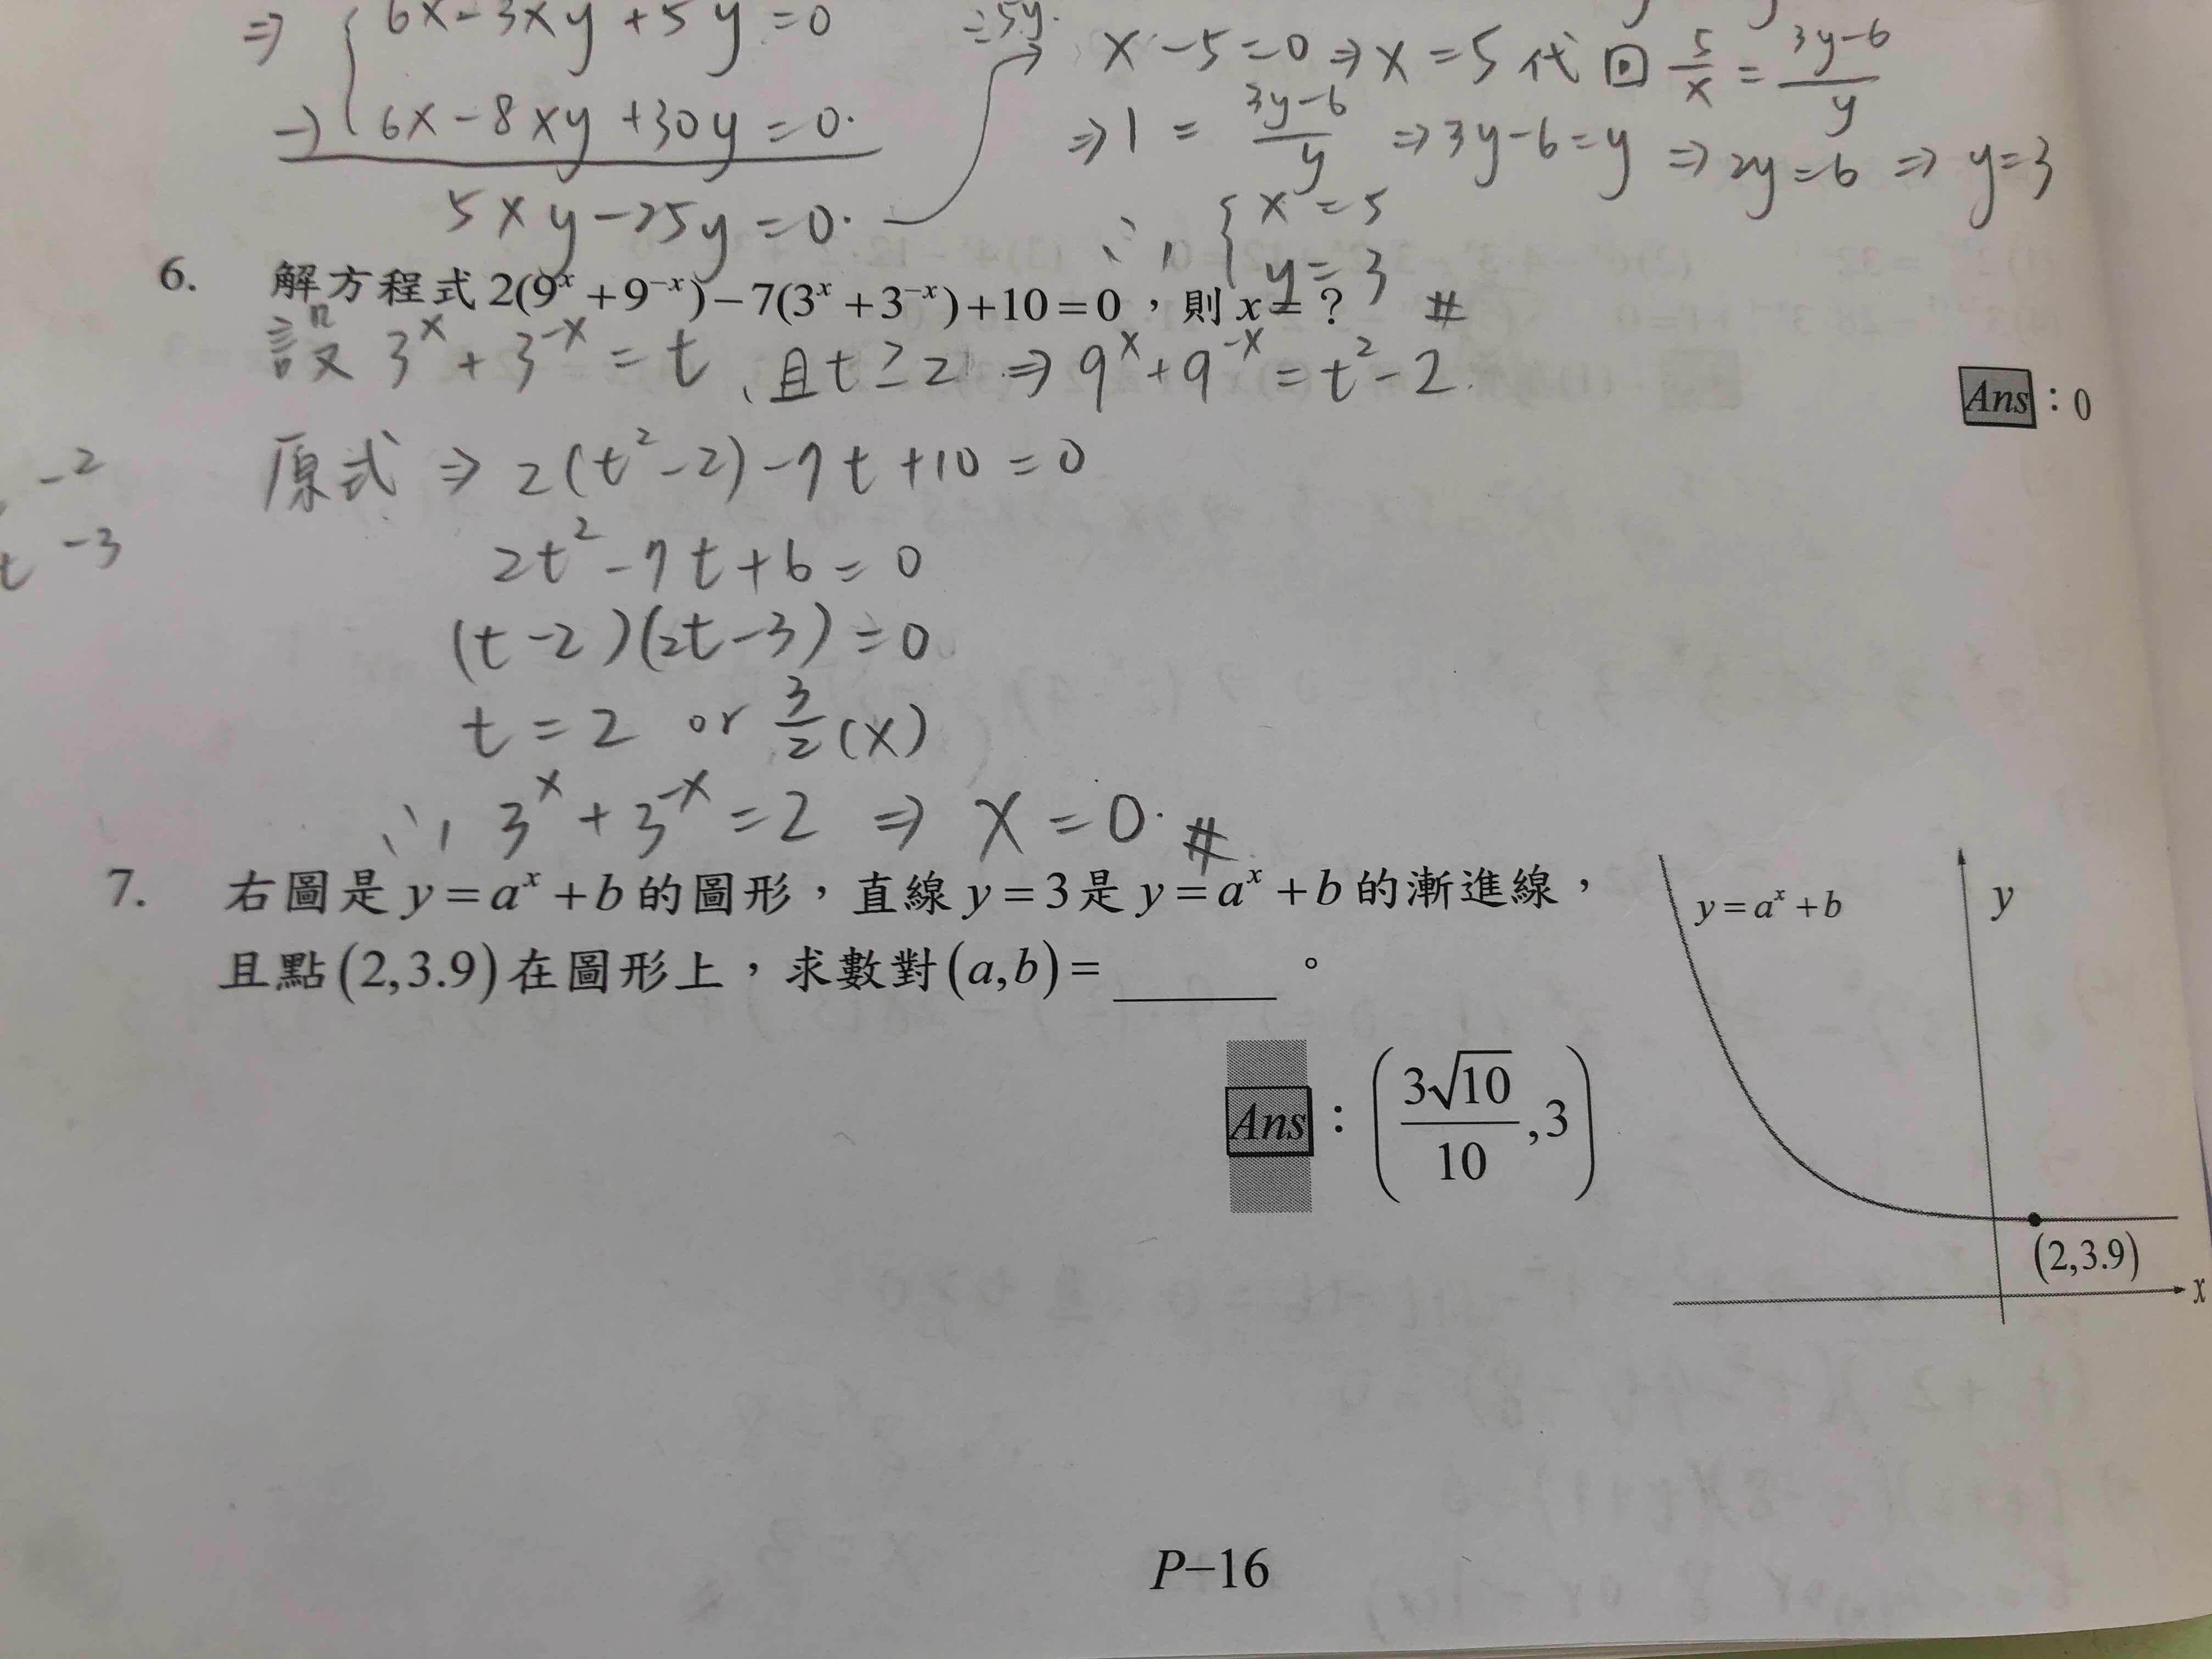 ⇒ { 6x-3xy+5y=0
-) 6x-8xy+30y=0.
5xy-25y=0.
÷5y.
x-5=0 ⇒ x=5 代回 5/x = (3y-6)/y
⇒ 1 = (3y-6)/y ⇒ 3y-6=y ⇒ 2y=6 ⇒ y=3
∴ { x=5
y=3 #
6. 解方程式 2(9^x+9^{-x})-7(3^x+3^{-x})+10=0,則 x=?
設 3^x+3^{-x}=t、且 t≥2 ⇒ 9^x+9^{-x}=t²-2.
Ans:0
原式 ⇒ 2(t²-2)-7t+10=0
-2
t -3
2t²-7t+6=0
(t-2)(2t-3)=0
t=2 or 3/2 (x)
∴ 3^x+3^{-x}=2 ⇒ x=0. #
7. 右圖是 y=a^x+b 的圖形,直線 y=3 是 y=a^x+b 的漸進線,
且點(2,3.9)在圖形上,求數對(a,b)=______。
Ans:(3√10/10,3)
y=a^x+b
y
(2,3.9)
x
P–16